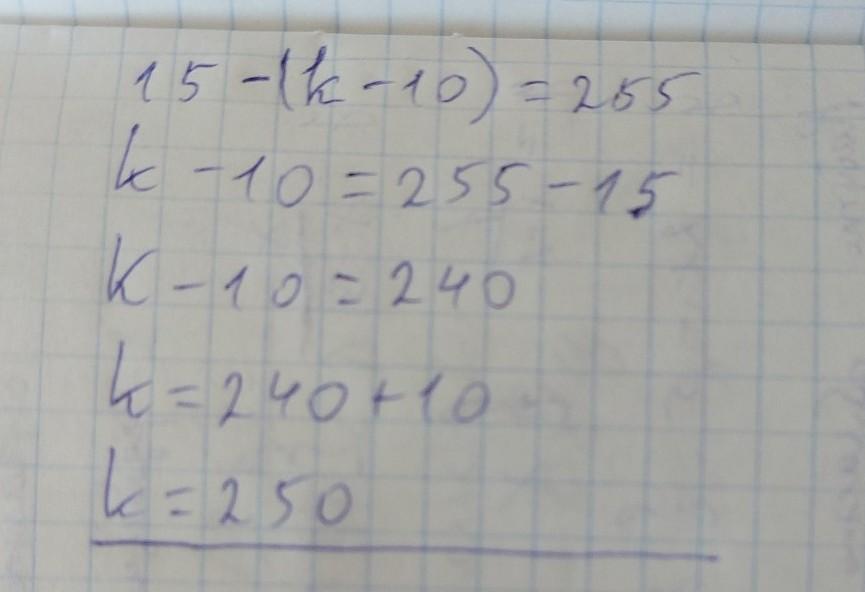 15-(k-10)=255
k-10=255-15
K-10=240
k=240+10
k=250